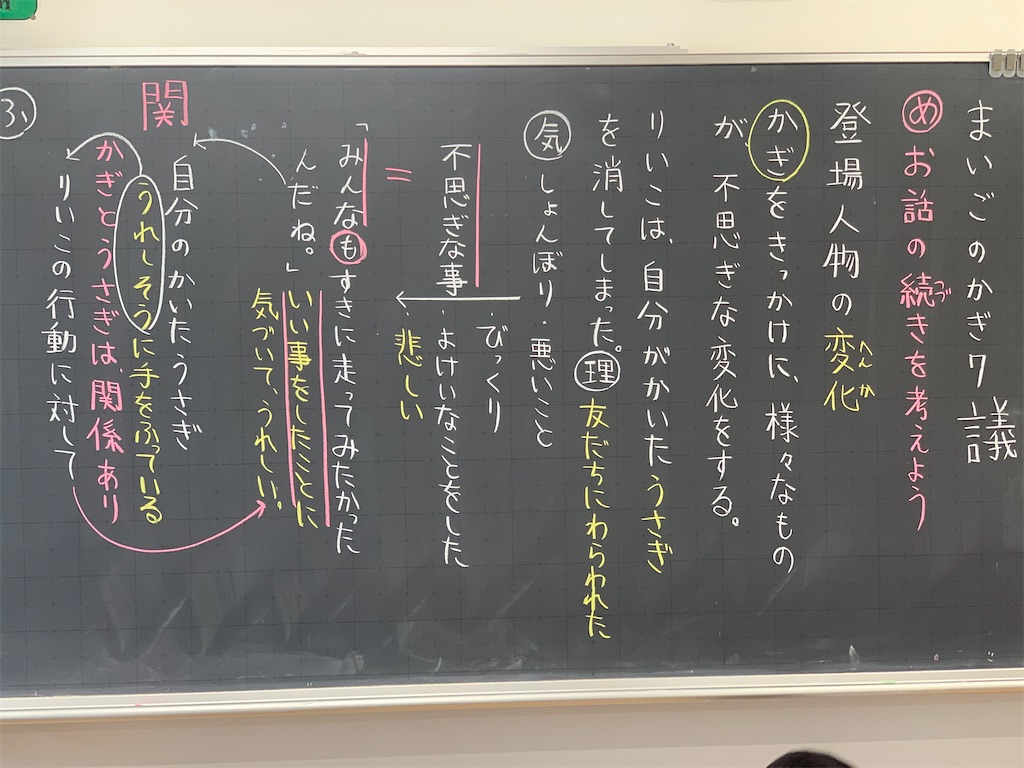 まいごのかぎ7 議
め お話の続きを考えよう
づ
登場人物の変化
へんか
かぎをきっかけに、様々なもの
が、不思ぎな変化をする。
りいこは、自分がかいたうさぎ
を消してしまった。理 友だちにわらわれた
気 しょんぼり・悪いこと
・びっくり
不思ぎな事・よけいなことをした
悲しい
=
「みんなもすきに走ってみたかった
んだね。」いい事をしたことに
気づいて、うれしい。
関
自分のかいたうさぎ
うれしそうに手をふっている
かぎとうさぎは、関係あり
りいこの行動に対して
ふ